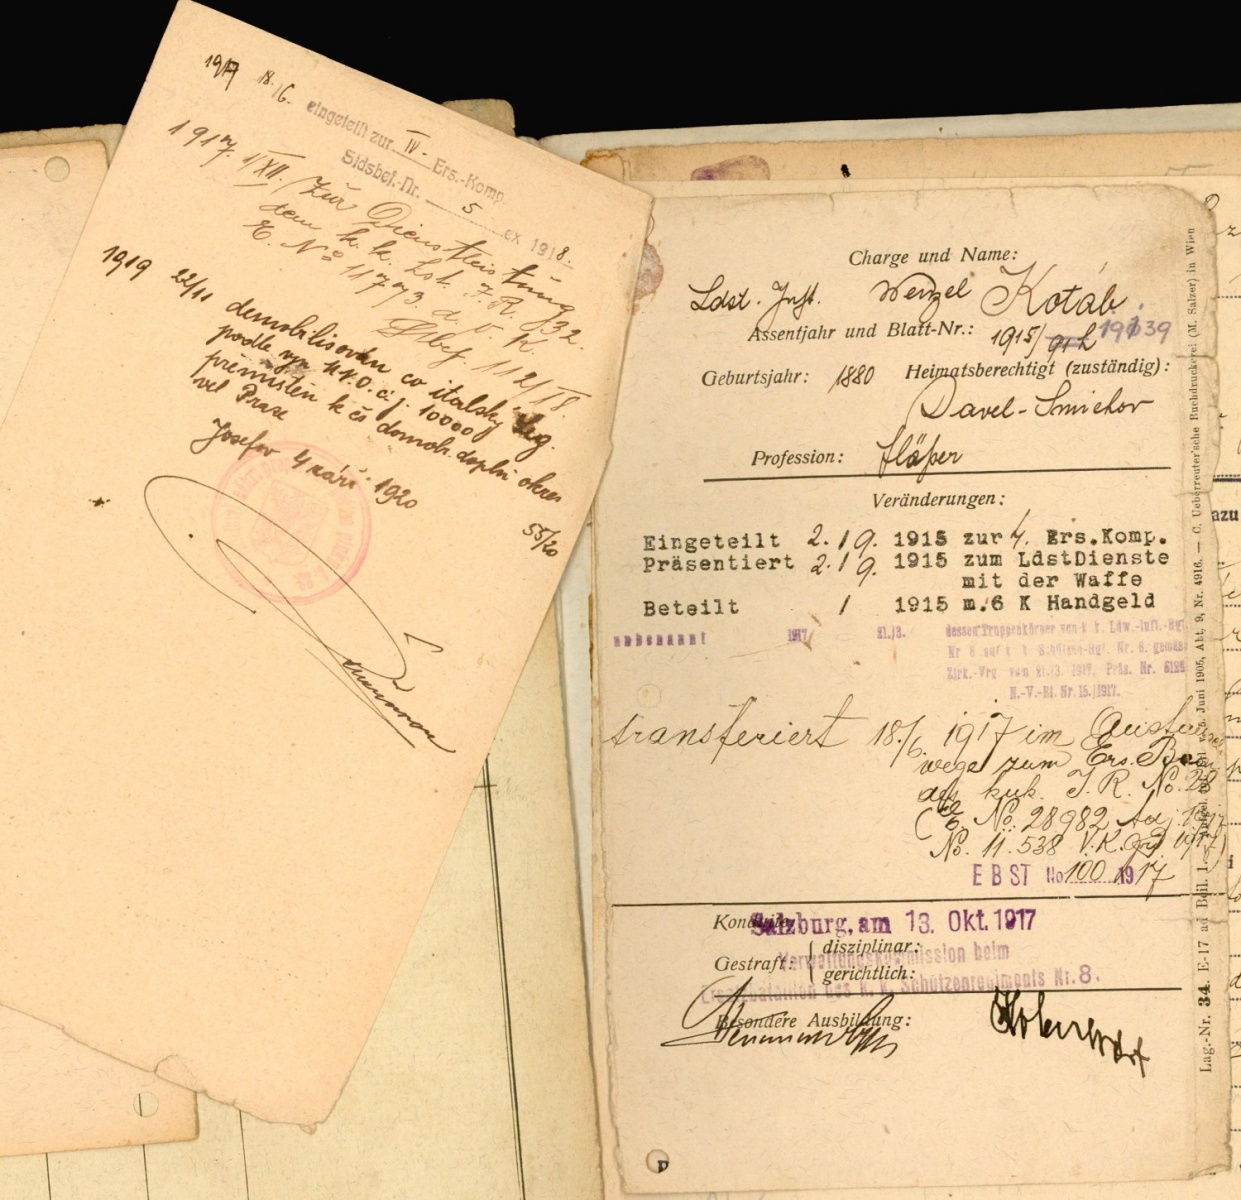 1917 18./6. eingeteilt zur IV. Ers.-Komp.
Sldsbef.-Nr. 5 ex 1918.
1917. 1/XII. Zur Dienstleistung
dem k. k. Lst. J. R. 32.
E. No 11773. d. v. K.
Stbef. 112/18.
1919 22/11 demobilisován co italský leg.
podle M.N.O. č. j. 10000
přemístěn k čs domob. doplň okres
vel Praze
55/20
Josefov 4 září 1920
Charge und Name:
Ldst. Jnft. Wenzel Kotáb.
Assentjahr und Blatt-Nr.: 1915/ 39
Geburtsjahr: 1880 Heimatsberechtigt (zuständig):
Davel-Smichov
Profession: Flößer
Veränderungen:
Eingeteilt 2./9. 1915 zur 4. Ers.Komp.
Präsentiert 2./9. 1915 zum LdstDienste
mit der Waffe
Beteilt / 1915 m.6 K Handgeld
umbenannt 1917 21./3. dessen Truppenkörper von k k. Ldw.-Inft.-Rgt.
Nr 8 auf k. k. Schützen-Rgt. Nr. 8. gemäß
Zirk.-Vrg vom 21./3. 1917, Präs. Nr.
N.-V.-Bl. Nr. 15./1917.
transferiert 18./6. 1917 im
wege zum Ers. Baon
des kuk. J. R. No. 28
No. 28982
No. 11.538 V.K. 1917)
E B ST No 100 1917
Konduite:
Salzburg, am 13. Okt. 1917
Gestraft: disziplinar:
gerichtlich:
Verwaltungskommission beim
Ersatzbataillon des k. k. Schützenregiments Nr. 8.
Besondere Ausbildung:
Lag.-Nr. 34. E-17 ad Beil. 1. Juni 1906, Abt. 9, Nr. 4916. — C. Ueberreuter'sche Buchdruckerei (M. Salzer) in Wien